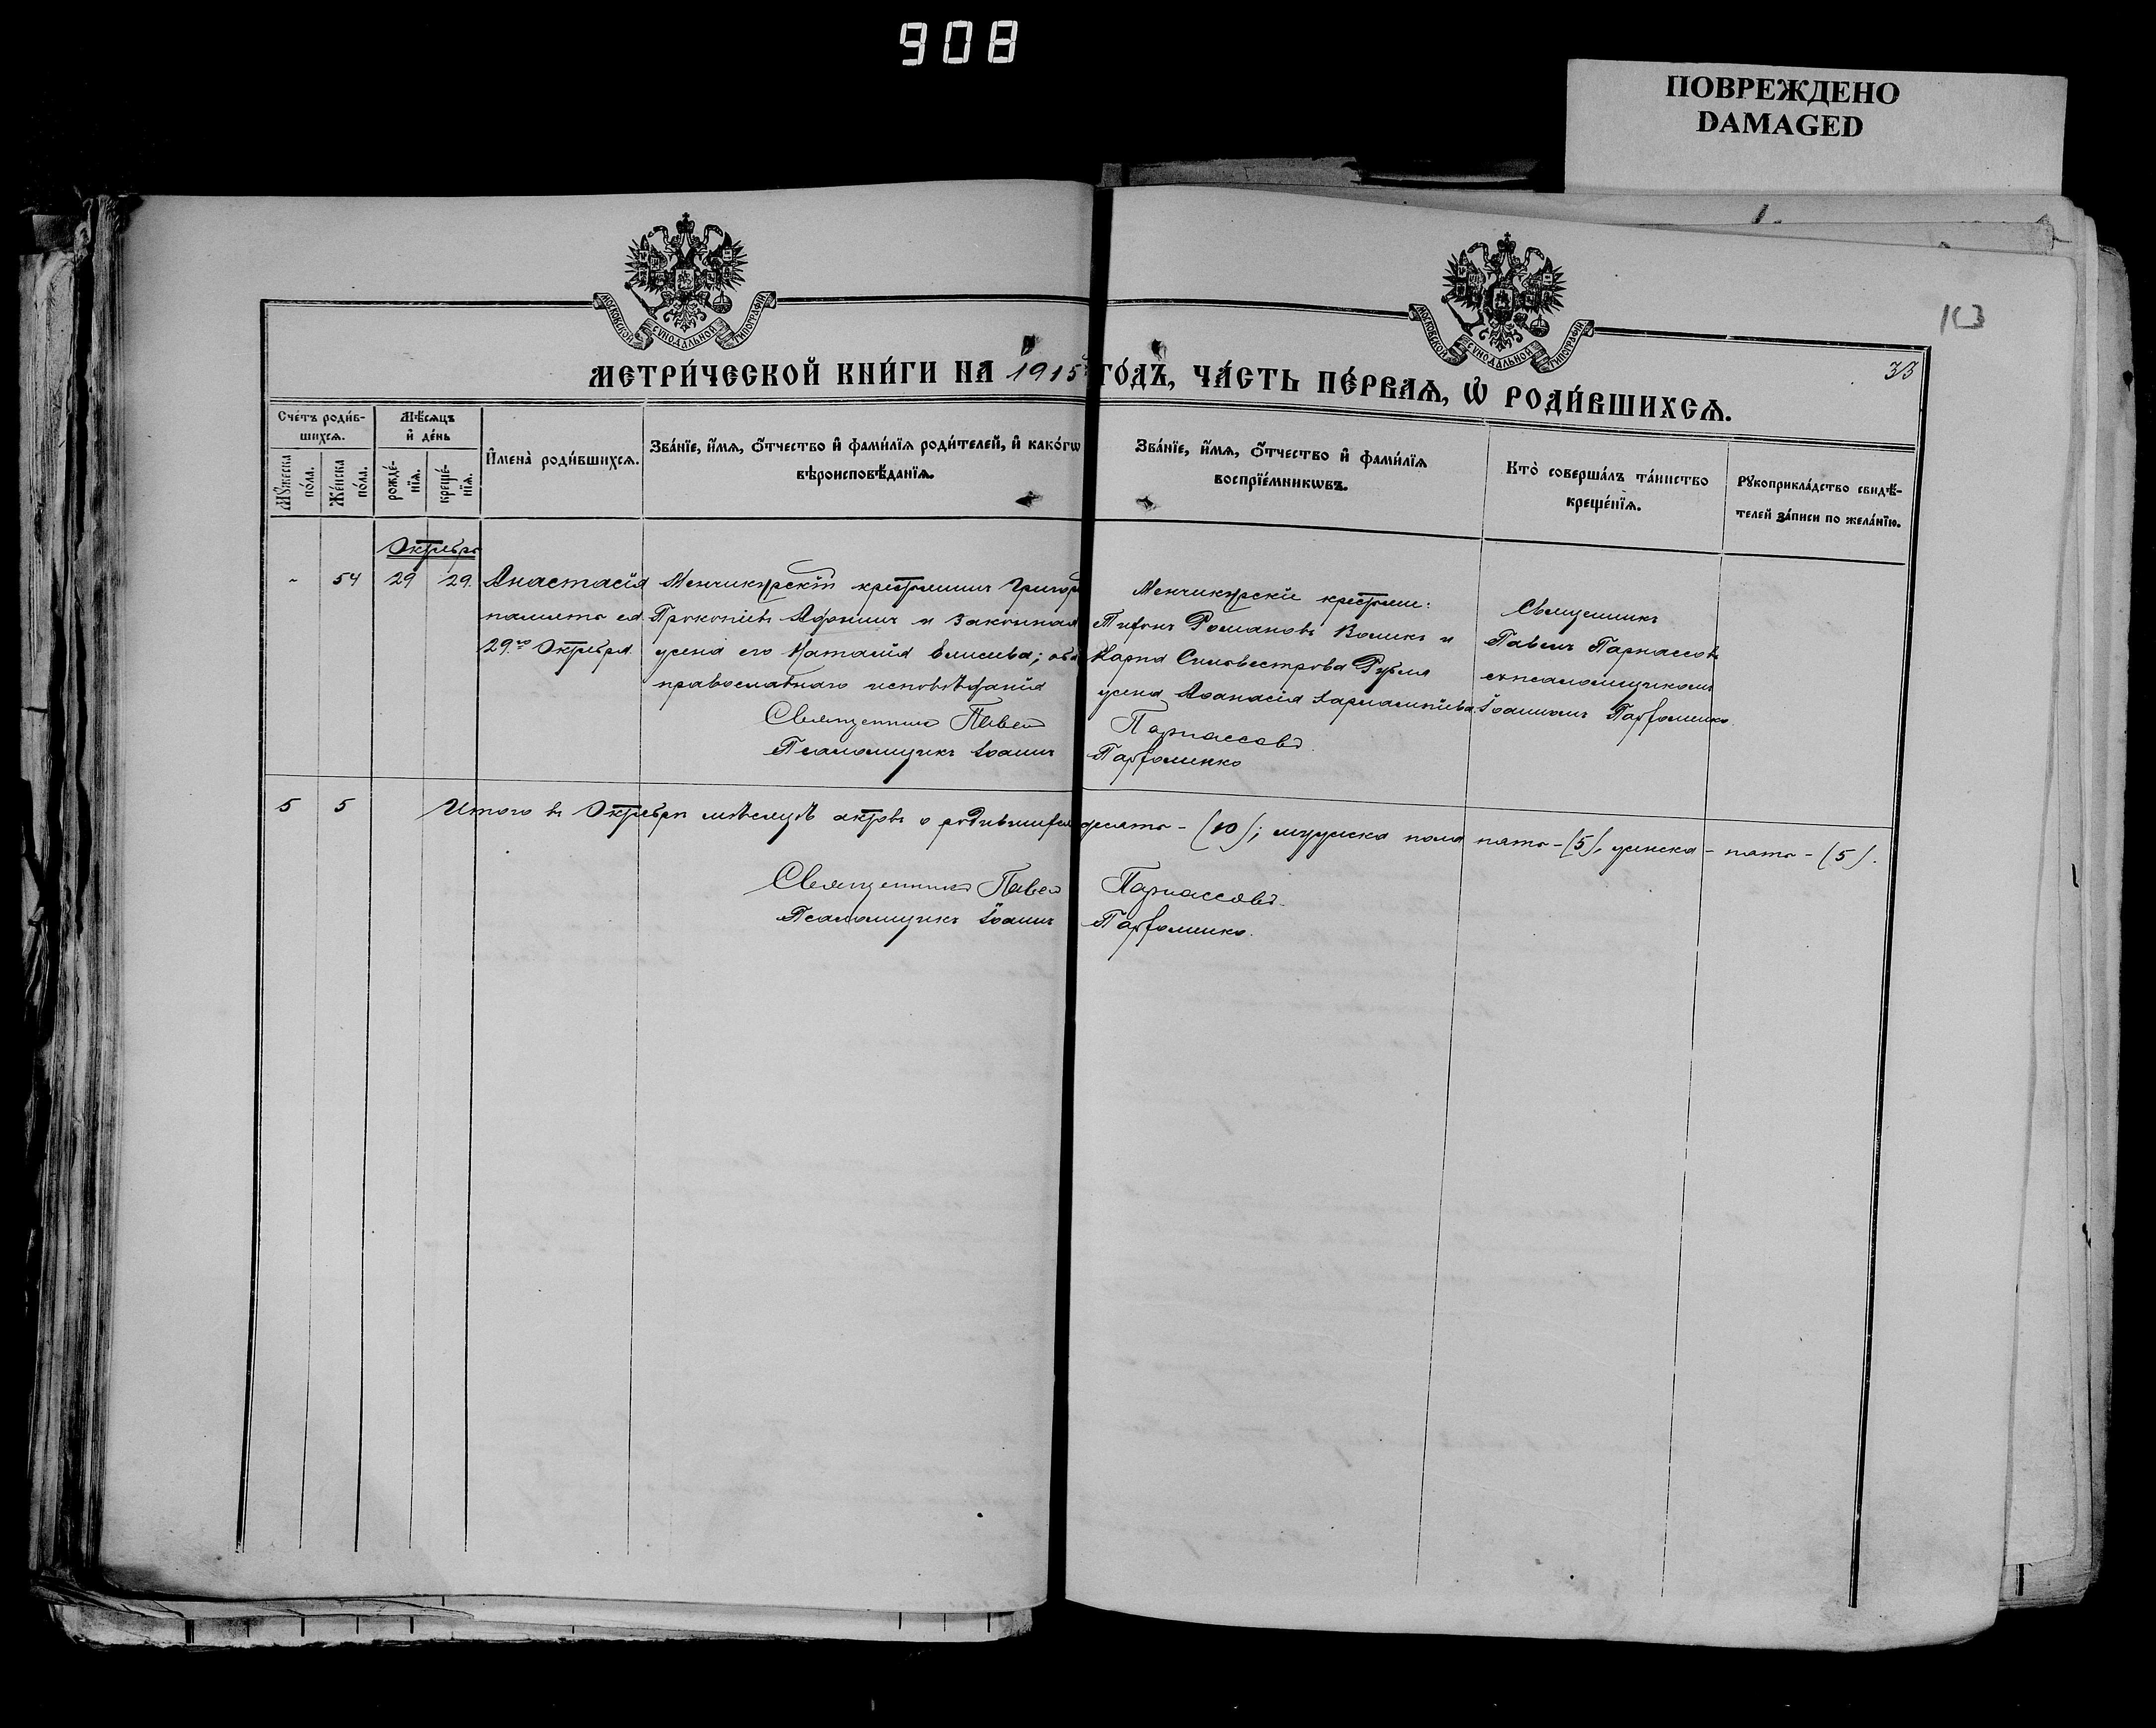 908
ПОВРЕЖДЕНО
DAMAGED
МОСКОВСКОЙ СѴНОДАЛЬНОЙ ТИПОГРАФІИ
МОСКОВСКОЙ СѴНОДАЛЬНОЙ ТИПОГРАФІИ
33
МЕТРИ́ЧЕСКОЙ КНИ́ГИ НА 1915 ГО́ДЪ, ЧА́СТЬ ПЕ́РВАѦ, Ѡ РОДИ́ВШИХСѦ.
Сче́тъ роди́в-
шихсѧ.
Мꙋ́жеска
по́ла.
Же́нска
по́ла.
Мѣ́сѧцъ
и҆ де́нь
рожде́-
нїѧ.
креще́-
нїѧ.
И҆мена̀ роди́вшихсѧ.
Зва́нїе, и҆́мѧ, ѻ҆́тчество и҆ фами́лїѧ роди́телей, и҆ како́гѡ
вѣроисповѣ́данїѧ.
Зва́нїе, и҆́мѧ, ѻ҆́тчество и҆ фами́лїѧ
воспрїе́мникѡвъ.
Кто̀ соверша́лъ та́инство
креще́нїѧ.
Рꙋкоприкла́дство свидѣ́-
телей за́писи по жела́нїю.
Октябрь
- 54 29 29.
Анастасія
память ея
29.го Октября
Менчикурскій крестьянинъ Григорій
Прокопіевъ Афонинъ и законная
жена его Наталія Елисеева; оба
православнаго исповѣданія
Менчикурскіе крестьяне:
Тихонъ Романовъ Воликъ и
Карпа Силовестрова Рубля
жена Аѳанасія Харлампіева.
Священникъ
Павелъ Парнассовъ
съ псаломщикомъ
Іоанномъ Парфоменко.
Священникъ Павелъ Парнассовъ.
Псаломщикъ Іоаннъ Парфоменко
5 5 Итого въ Октябрѣ мѣсяцѣ актовъ о родившихся десять - (10); мужска пола пять - (5), женска - пять - (5).
Священникъ Павелъ Парнассовъ.
Псаломщикъ Іоаннъ Парфоменко.